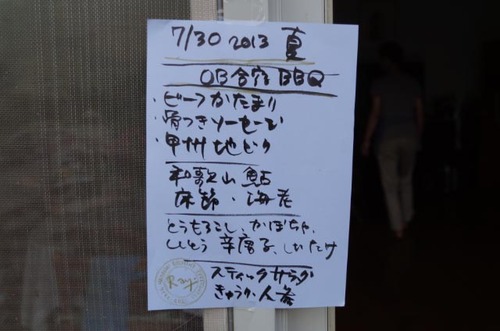 7/30 2013 夏
OB合宿BBQ
・ビーフかたまり
・骨つきソーセージ
・甲州地どり
和歌山 鮎
海老
とうもろこし、かぼちゃ、
ししとう 唐辛子、しいたけ
スティックサラダ
きゅうり 人参